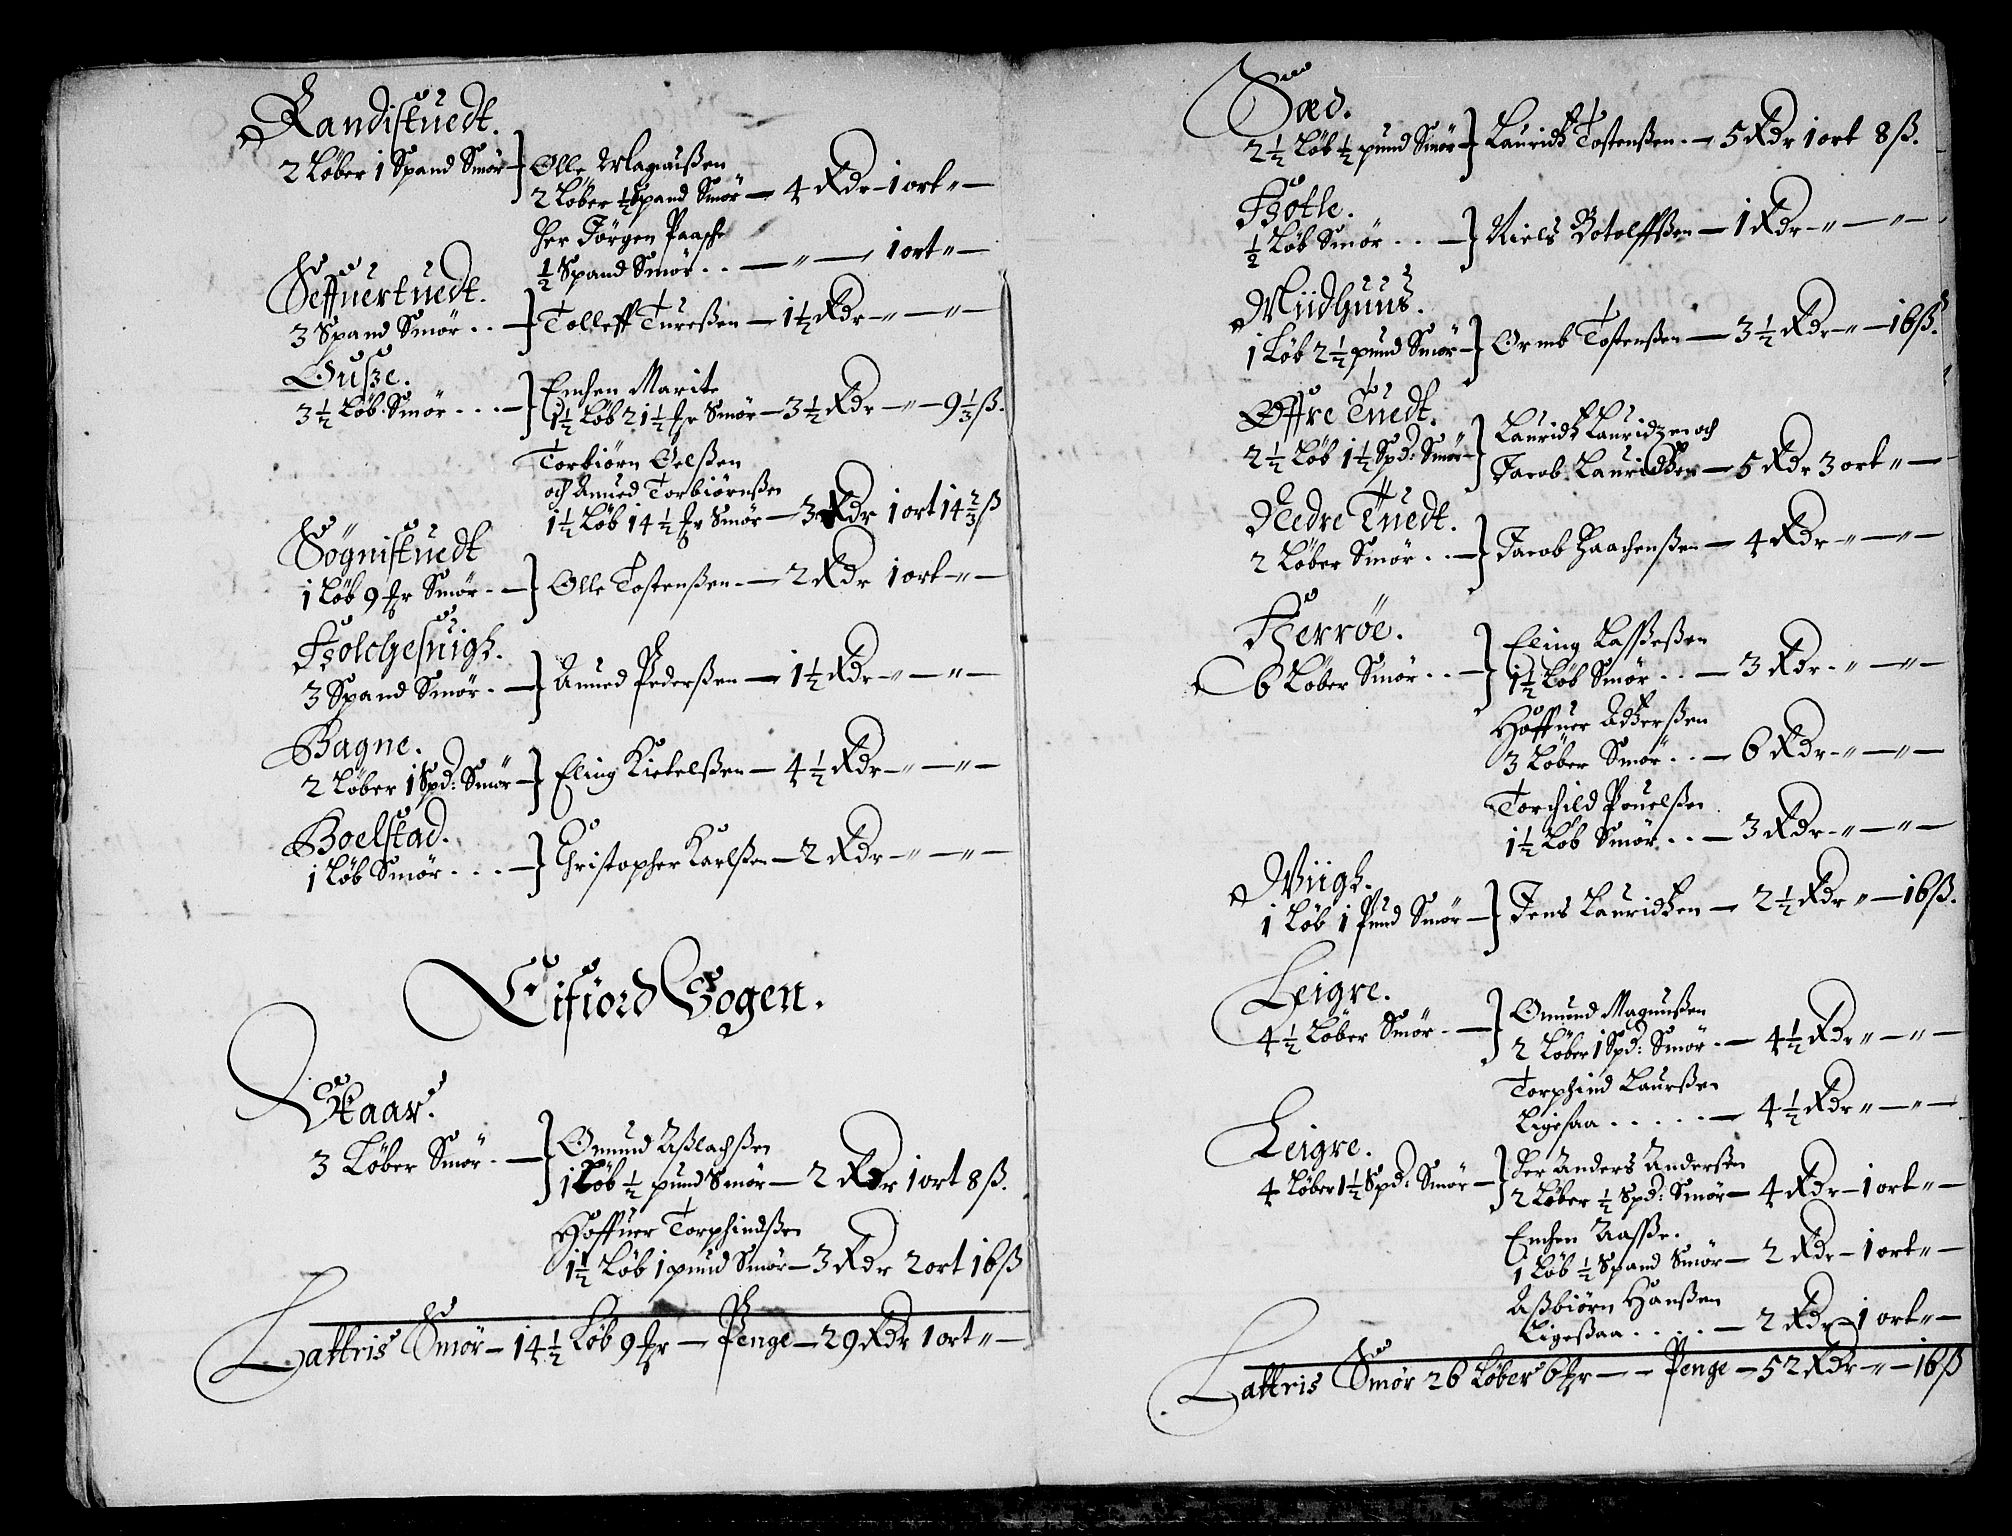 Randistuedt.
2 Løber 1 Spand Smør — Olle Magnußen
2 Løber ½ Spand Smør — 4 Rdr — 1 ort „ —
Her Jørgen Paasche
½ Spand Smør . . — „ — 1 ort „ —
Seffuertuedt.
3 Spand Smør . . — Tolleff Tureßen — 1½ Rdr — „ — „ —
Ousze.
3½ Løb Smør . . . — Enchen Marite
1½ Løb 2 1½ mr Smør — 3½ Rdr — „ — 9⅓ ß.
Torbiørn Oelßen
och Anued Torbiørnßen
1½ Løb 14½ mr Smør — 3 Rdr 1 ort 14⅔ ß
Søgnistuedt
1 Løb 9 mr Smør . — Olle Tostenßen . — 2 Rdr 1 ort „ —
Holchesuigh.
3 Spand Smør . — Anued Pederßen — 1½ Rdr — „ — „ —
Bagne.
2 Løber 1 Spd: Smør — Eling Kietelßen — 4½ Rdr — „ — „ —
Boelstad.
1 Løb Smør . . . — Christopher Karlßen — 2 Rdr — „ — „ —
Eifiord Sogen.
Haar.
3 Løber Smør . — Omund Aßlachßen
1 Løb ½ pund Smør — 2 Rdr 1 ort 8 ß.
Hoffuer Torphindßen
1½ Løb 1 pund Smør — 3 Rdr 2 ort 16 ß
Lattris Smør — 14½ Løb 9 mr — Penge — 29 Rdr 1 ort „ —
Sæd.
2½ Løb ½ pund Smør — Lauridz Tostenßen . — 5 Rdr 1 ort 8 ß.
Hotle.
½ Løb Smør . . — Niels Botolffßen — 1 Rdr — „ — „ —
Miidhuus.
1 Løb 2½ pund Smør — Ormb Tostenßen — 3½ Rdr „ — 16 ß.
Øffre Tuedt.
2½ Løb 1½ Spd: Smør — Lauridz Lauridzen och
Jacob Lauridzen — 5 Rdr 3 ort „ —
Nedre Tuedt.
2 Løber Smør . . — Jacob Haachenßen — 4 Rdr — „ — „ —
Herrøe.
6 Løber Smør . . — Eling Laßeßen
1½ Løb Smør . . — 3 Rdr . „ — „ —
Hoffuer Adzerßen
3 Løber Smør . . — 6 Rdr — „ — „ —
Torchild Pouelßen
1½ Løb Smør . . — 3 Rdr — „ — „ —
Wiigh.
1 Løb 1 Pund Smør — Jens Lauridzen — 2½ Rdr „ — 16 ß.
Leigre.
4½ Løber Smør . — Omund Magnußen
2 Løber 1 Spd: Smør . — 4½ Rdr „ — „ —
Torphind Laurßen
Ligesaa . . . . . — 4½ Rdr „ — „ —
Leigre.
4 Løber 1½ Spd: Smør — Her Anders Anderßen
2 Løber ½ Spd: Smør — 4 Rdr — 1 ort „ —
Enchen Aaße.
1 Løb ½ Spand Smør — 2 Rdr — 1 ort „ —
Aßbiørn Hanßen
Ligeßaa . . . . — 2 Rdr — 1 ort „ —
Lattris Smør 26 Løber 6 mr — — Penge — 52 Rdr — „ — 16 ß